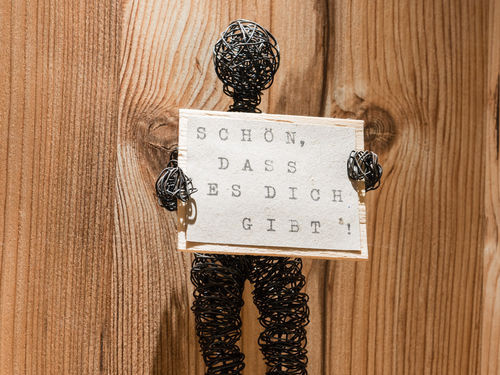 SCHÖN,
DASS
ES DICH
GIBT !